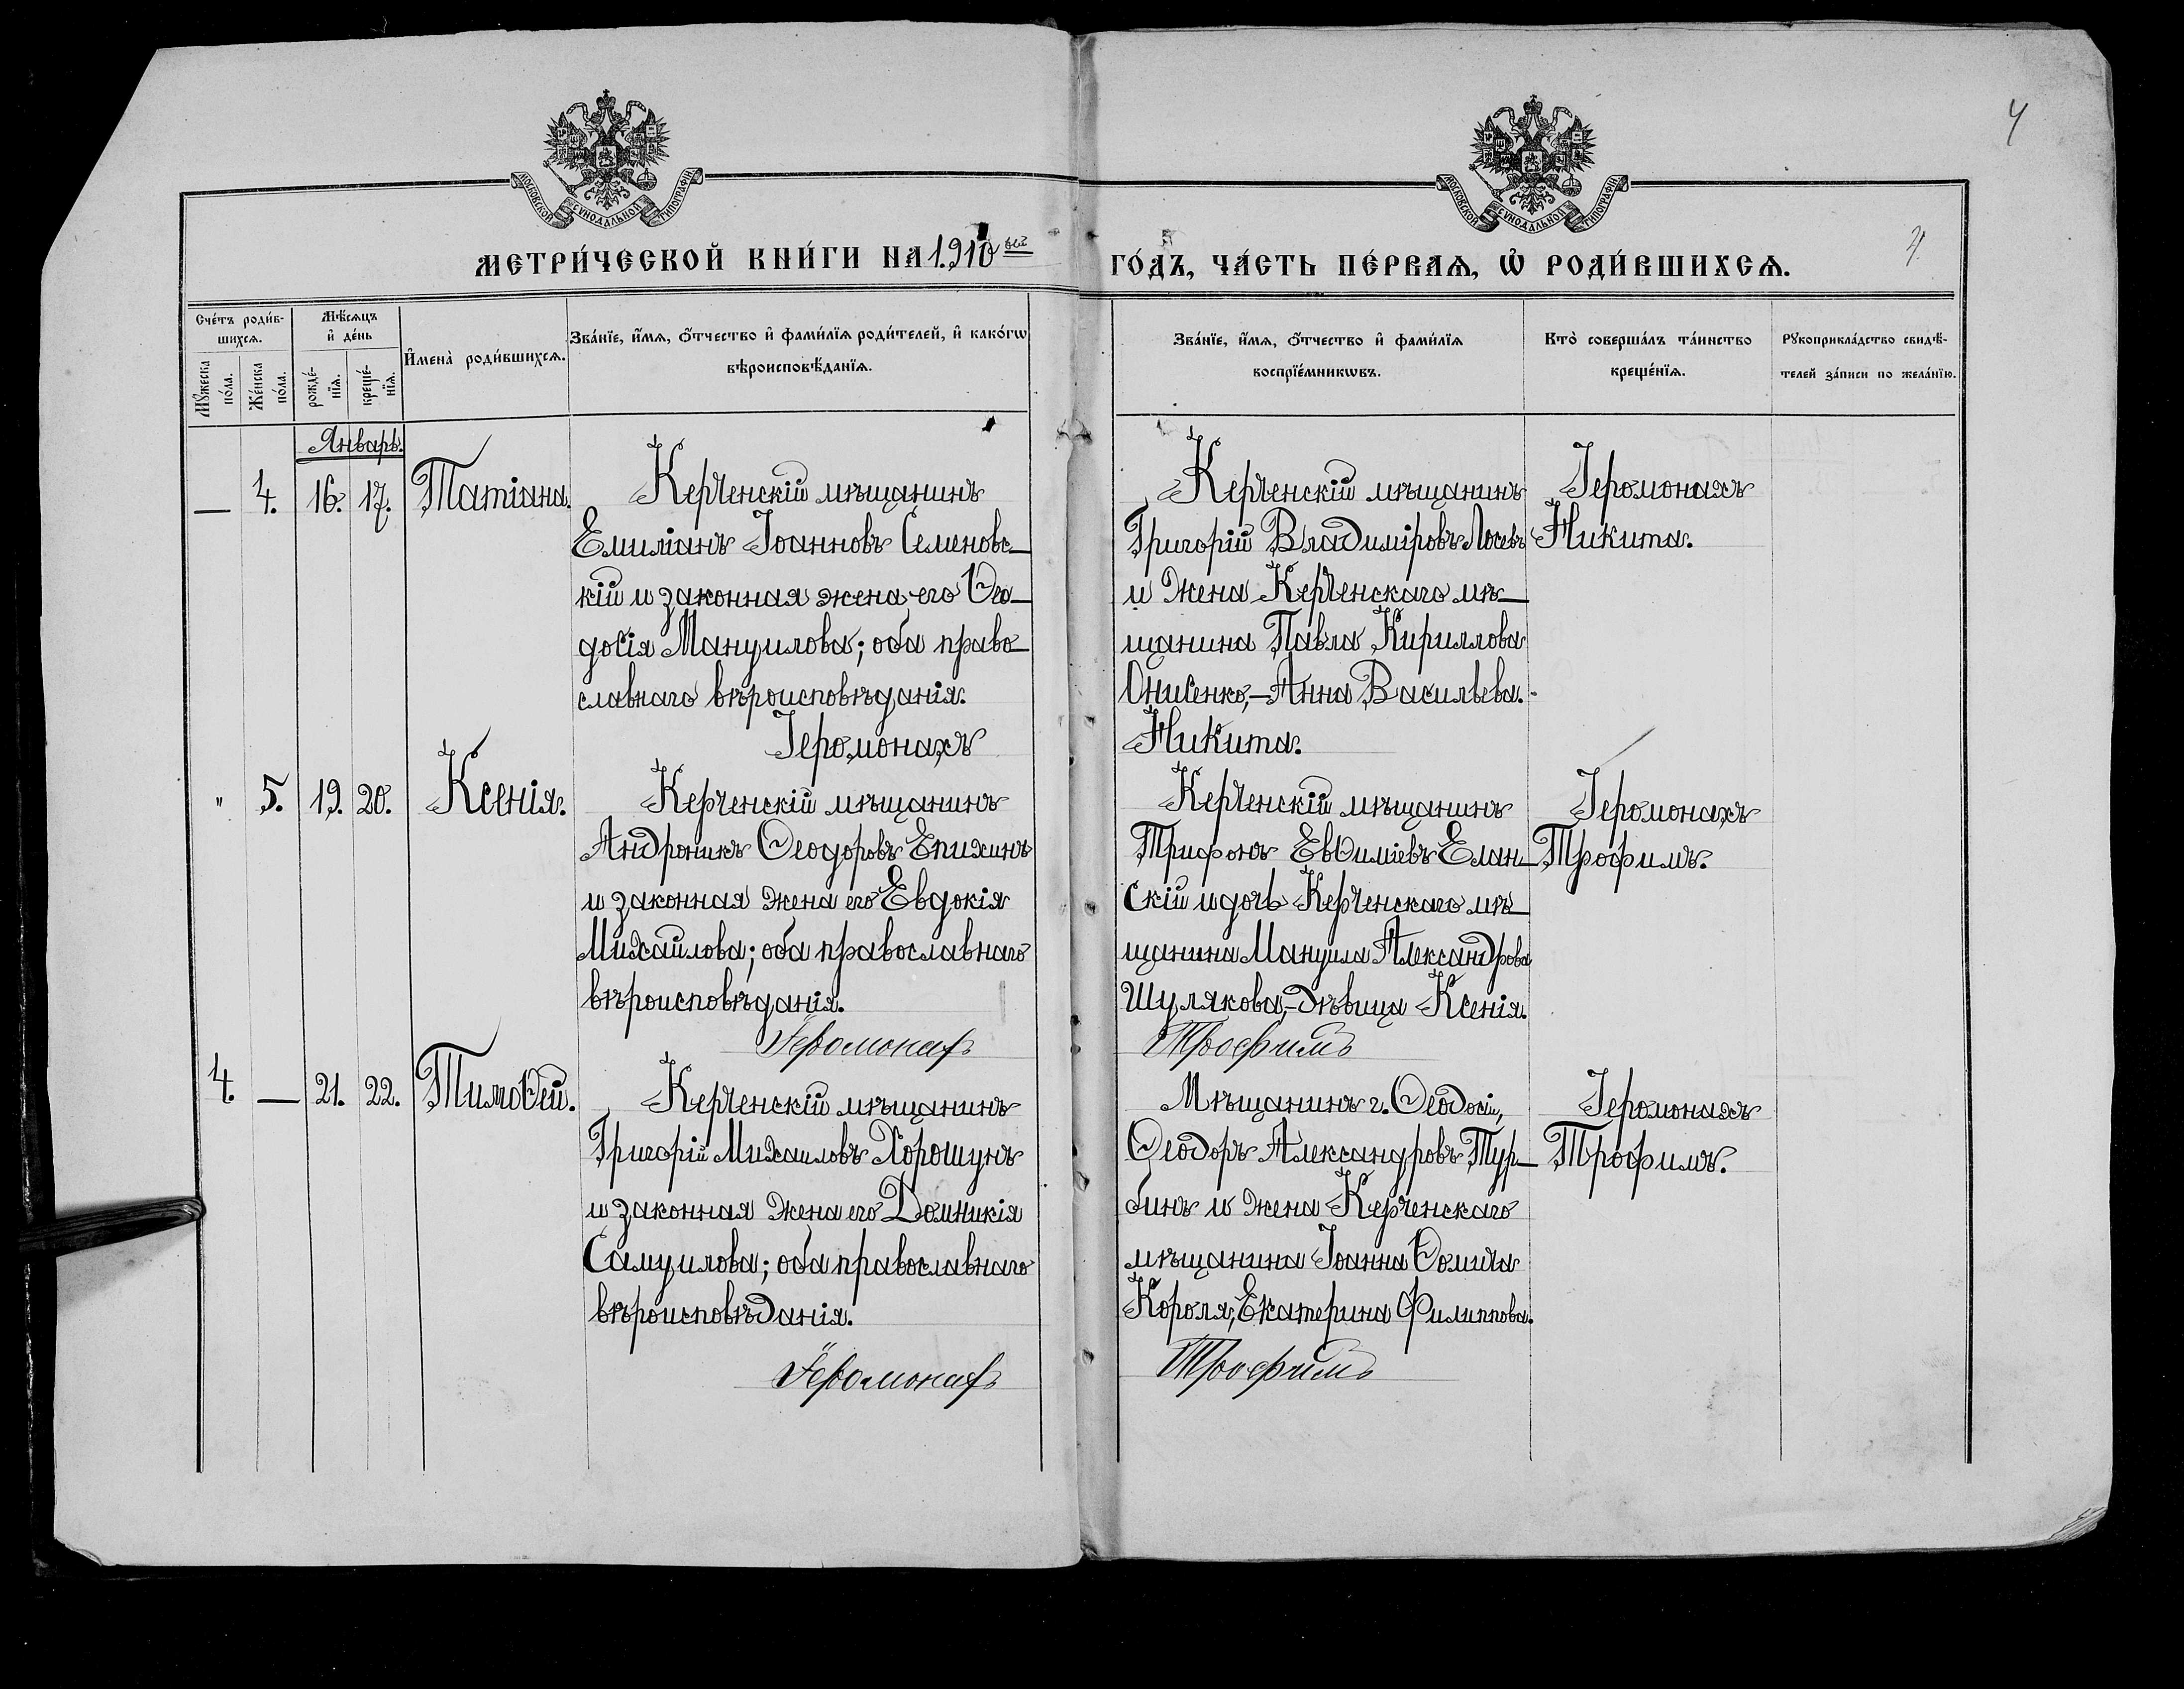 4
МОСКОВСКОЙ СУНОДАЛЬНОЙ ТИПОГРАФІИ
МОСКОВСКОЙ СУНОДАЛЬНОЙ ТИПОГРАФІИ
МЕТРИ́ЧЕСКОЙ КНИ́ГИ НА 1910 ый
ГО́ДЪ, ЧА́СТЬ ПЕ́РВАѦ, Ѡ҆ РОДИ́ВШИХСѦ.
4
Сче́тъ роди́в-
шихсѧ.
Мꙋ́жеска по́ла.
Же́нска по́ла.
Мѣ́сѧцъ
и҆ де́нь
рожде́-нїѧ.
креще́-нїѧ.
И҆мена̀ роди́вшихсѧ.
Зва́нїе, и҆́мѧ, ѻ҆́тчество и҆ фами́лїѧ роди́телей, и҆ како́гѡ
вѣроисповѣ́данїѧ.
Зва́нїе, и҆́мѧ, ѻ҆́тчество и҆ фами́лїѧ
воспрїе́мникѡвъ.
Кто̀ соверша́лъ та́инство
креще́нїѧ.
Рꙋкоприкла́дство свидѣ́-
телей за́писи по жела́нїю.
Январь.
— 4. 16. 17. Татіана.
Керченскій мѣщанинъ
Емиліанъ Іоанновъ Семеновс-
кій и законная жена его Ѳео-
досія Мануилова; оба право-
славнаго вѣроисповѣданія.
Іеромонахъ
Керченскій мѣщанинъ
Григорій Владиміровъ Лосевъ
и жена Керченскаго мѣ-
щанина Павла Кириллова
Онисенко,-Анна Васильева.
Никита.
Іеромонахъ
Никита.
" 5. 19. 20. Ксенія.
Керченскій мѣщанинъ
Андроникъ Ѳеодоровъ Епихинъ
и законная жена его Евдокія
Михаилова; оба православнаго
вѣроисповѣданія.
Іеромонахъ
Керченскій мѣщанинъ
Трифонъ Евѳиміевъ Елан-
скій и дочь Керченскаго мѣ-
щанина Мануила Александрова
Шулякова,-дѣвица Ксенія.
Трофимъ
Іеромонахъ
Трофимъ.
4. — 21. 22. Тимоѳей.
Керченскій мѣщанинъ
Григорій Михаиловъ Хорошунъ
и законная жена его Домникія
Самуилова; оба православнаго
вѣроисповѣданія.
Іеромонахъ
Мѣщанинъ г. Ѳеодосіи,
Ѳеодоръ Александровъ Тур-
бинъ и жена Керченскаго
мѣщанина Іоанна Ѳомича
Короля, Екатерина Филиппова.
Трофимъ
Іеромонахъ
Трофимъ.